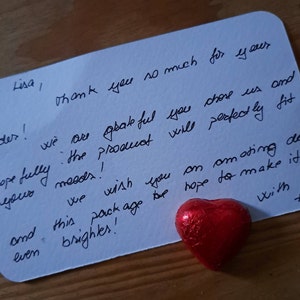 Lisa,
thank you so much for your
der! we are grateful you chose us and
opefully the product will perfectly fit
your needs!
we wish you an amazing da
and this package be hope to make it
even brighter! with